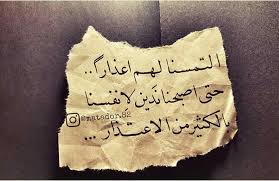 التمسنا لهم اعذاراً..
حتى أصبحنا نَدين لانفسنا
بالكثير من الاعتذار...
@matador.82